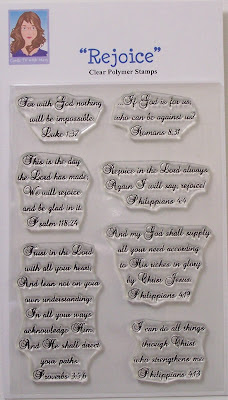 "Rejoice"
Clear Polymer Stamps
For with God nothing
will be impossible.
Luke 1:37
...If God is for us,
who can be against us?
Romans 8:31
This is the day
the Lord has made;
We will rejoice
and be glad in it.
Psalm 118:24
Rejoice in the Lord always.
Again I will say, rejoice!
Philippians 4:4
And my God shall supply
all your need according
to His riches in glory
by Christ Jesus.
Philippians 4:19
Trust in the Lord
with all your heart,
And lean not on your
own understanding;
In all your ways
acknowledge Him,
And He shall direct
your paths.
Proverbs 3:5,6
I can do all things
through Christ
who strengthens me.
Philippians 4:13